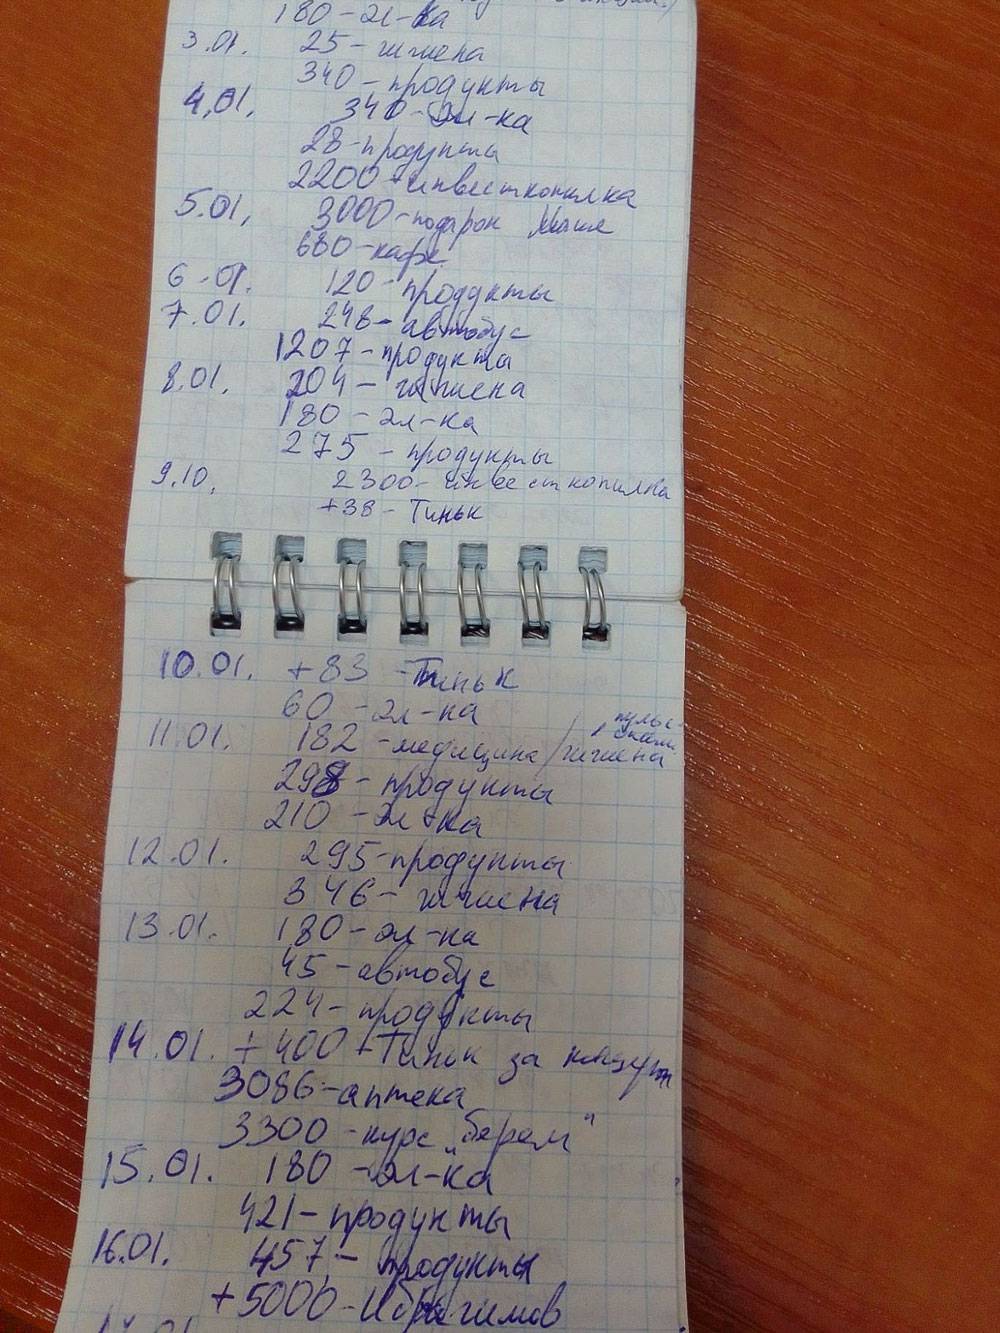 180-эл-ка
3.01. 25-гигиена
340-продукты
4.01. 340-эл-ка
28-продукты
2200-инвесткопилка
5.01. 3000-подарок Маше
680-кафе
6.01. 120-продукты
7.01. 248-автобус
1207-продукты
8.01. 204-гигиена
180-эл-ка
275-продукты
9.10. 2300-инвесткопилка
+38-Тиньк
10.01. +83-Тиньк
60-эл-ка
11.01. 182-медицина/гигиена
298-продукты
210-эл-ка
12.01. 295-продукты
346-гигиена
13.01. 180-эл-ка
45-автобус
224-продукты
14.01. +400-Тиньк за
3086-аптека
3300-курс "Берем"
15.01. 180-эл-ка
421-продукты
16.01. 457-продукты
+5000-Ибрагимов
17.01